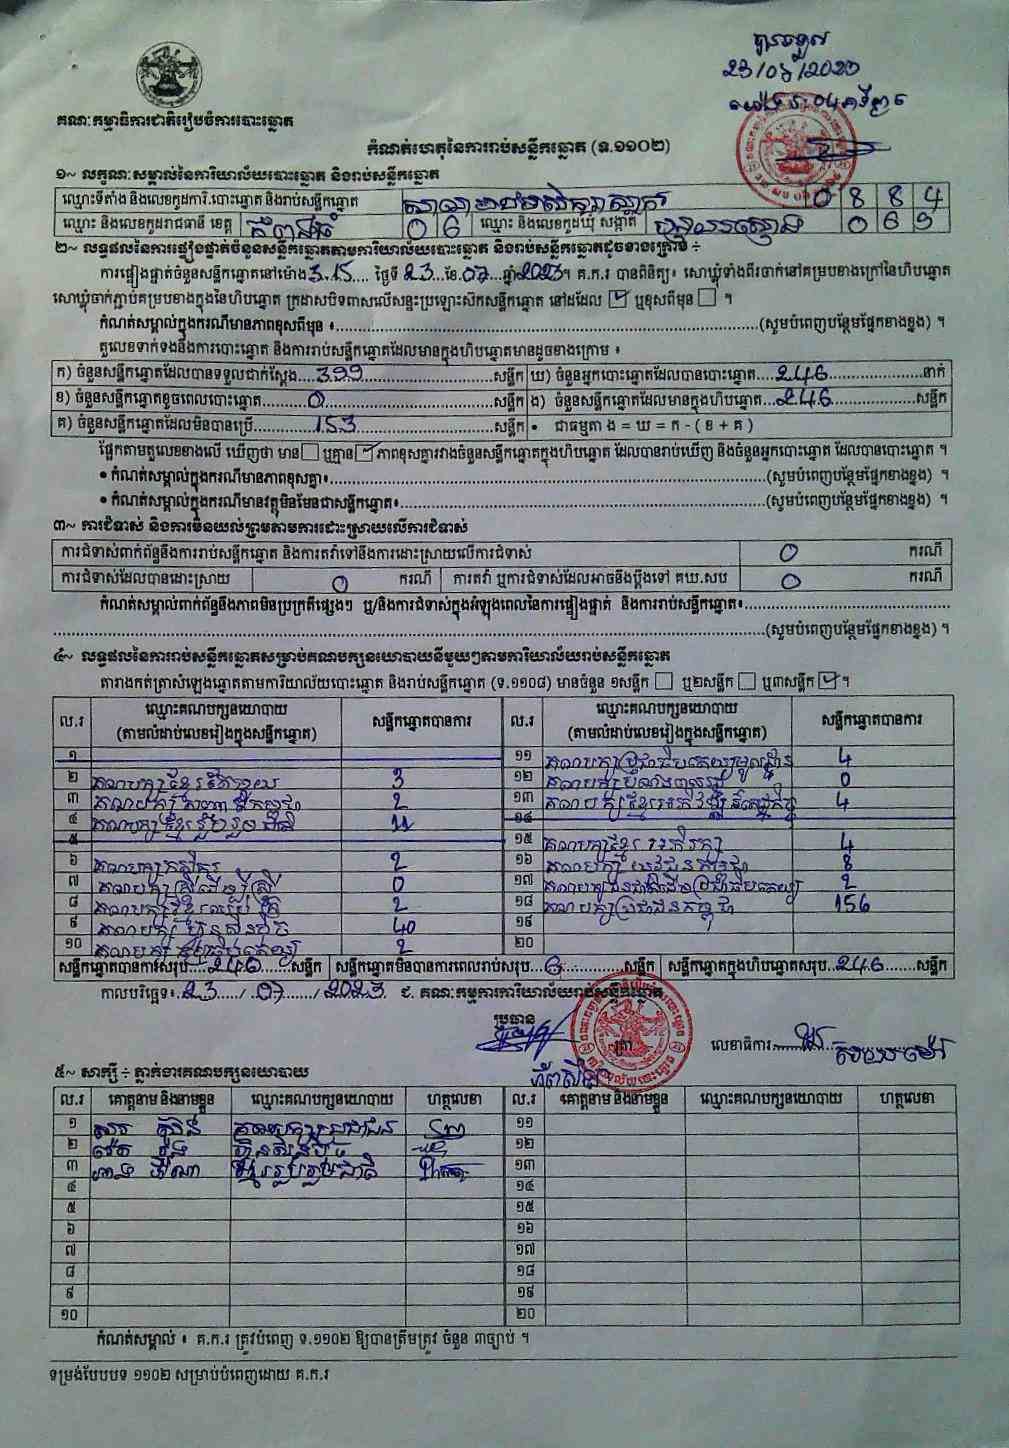 បានទទួល
23/07/2023
គណៈកម្មាធិការជាតិរៀបចំការបោះឆ្នោត
កំណត់ហេតុនៃការរាប់សន្លឹកឆ្នោត (ទ.១១០២)
១~ លក្ខណៈសម្គាល់នៃការិយាល័យបោះឆ្នោត និងរាប់សន្លឹកឆ្នោត
ឈ្មោះទីតាំង និងលេខកូដការិ.បោះឆ្នោត និងរាប់សន្លឹកឆ្នោត 0 8 8 4
ឈ្មោះ និងលេខកូដរាជធានី ខេត្ត កំពង់ធំ 0 6 ឈ្មោះ និងលេខកូដឃុំ សង្កាត់ 0 6 9
២~ លទ្ធផលនៃការផ្ទៀងផ្ទាត់ចំនួនសន្លឹកឆ្នោតតាមការិយាល័យបោះឆ្នោត និងរាប់សន្លឹកឆ្នោតដូចខាងក្រោម ÷
ការផ្ទៀងផ្ទាត់ចំនួនសន្លឹកឆ្នោតនៅម៉ោង 3.15 ថ្ងៃទី 23 ខែ 07 ឆ្នាំ 2023 ។ គ.ក.រ បានពិនិត្យ៖ សោឃ្លុំទាំងពីរចាក់នៅគម្របខាងក្រៅនៃហិបឆ្នោត
សោឃ្លុំចាក់ភ្ជាប់គម្របខាងក្នុងនៃហិបឆ្នោត ក្រដាសបិទពាសលើសន្ទះប្រឡោះស៊កសន្លឹកឆ្នោត នៅដដែល ☑ ឬខុសពីមុន ☐ ។
កំណត់សម្គាល់ក្នុងករណីមានភាពខុសពីមុន ៖ (សូមបំពេញបន្ថែមផ្នែកខាងខ្នង) ។
តួលេខទាក់ទងនឹងការបោះឆ្នោត និងការរាប់សន្លឹកឆ្នោតដែលមានក្នុងហិបឆ្នោតមានដូចខាងក្រោម ៖
ក) ចំនួនសន្លឹកឆ្នោតដែលបានទទួលជាក់ស្តែង 399 សន្លឹក ឃ) ចំនួនអ្នកបោះឆ្នោតដែលបានបោះឆ្នោត 246 នាក់
ខ) ចំនួនសន្លឹកឆ្នោតខូចពេលបោះឆ្នោត 0 សន្លឹក ង) ចំនួនសន្លឹកឆ្នោតដែលមានក្នុងហិបឆ្នោត 246 សន្លឹក
គ) ចំនួនសន្លឹកឆ្នោតដែលមិនបានប្រើ 153 សន្លឹក • ជាធម្មតា ង = ឃ = ក - ( ខ + គ )
ផ្អែកតាមតួលេខខាងលើ ឃើញថា មាន ☐ ឬគ្មាន ☑ ភាពខុសគ្នារវាងចំនួនសន្លឹកឆ្នោតក្នុងហិបឆ្នោត ដែលបានរាប់ឃើញ និងចំនួនអ្នកបោះឆ្នោត ដែលបានបោះឆ្នោត ។
• កំណត់សម្គាល់ក្នុងករណីមានភាពខុសគ្នា៖ (សូមបំពេញបន្ថែមផ្នែកខាងខ្នង) ។
• កំណត់សម្គាល់ក្នុងករណីមានវត្ថុមិនមែនជាសន្លឹកឆ្នោត៖ (សូមបំពេញបន្ថែមផ្នែកខាងខ្នង) ។
៣~ ការជំទាស់ និងការមិនយល់ព្រមតាមការដោះស្រាយលើការជំទាស់
ការជំទាស់ពាក់ព័ន្ធនឹងការរាប់សន្លឹកឆ្នោត និងការតវ៉ាទៅនឹងការដោះស្រាយលើការជំទាស់ 0 ករណី
ការជំទាស់ដែលបានដោះស្រាយ 0 ករណី ការតវ៉ា ឬការជំទាស់ដែលអាចនឹងប្តឹងទៅ គឃ.សប 0 ករណី
កំណត់សម្គាល់ពាក់ព័ន្ធនឹងភាពមិនប្រក្រតីផ្សេងៗ ឬ/និងការជំទាស់ក្នុងអំឡុងពេលនៃការផ្ទៀងផ្ទាត់ និងការរាប់សន្លឹកឆ្នោត៖
(សូមបំពេញបន្ថែមផ្នែកខាងខ្នង) ។
៤~ លទ្ធផលនៃការរាប់សន្លឹកឆ្នោតសម្រាប់គណបក្សនយោបាយនីមួយៗតាមការិយាល័យរាប់សន្លឹកឆ្នោត
តារាងកត់ត្រាសំឡេងឆ្នោតតាមការិយាល័យបោះឆ្នោត និងរាប់សន្លឹកឆ្នោត (ទ.១១០៨) មានចំនួន ១សន្លឹក ☐ ឬ២សន្លឹក ☐ ឬ៣សន្លឹក ☑ ។
ល.រ ឈ្មោះគណបក្សនយោបាយ (តាមលំដាប់លេខរៀងក្នុងសន្លឹកឆ្នោត) សន្លឹកឆ្នោតបានការ ល.រ ឈ្មោះគណបក្សនយោបាយ (តាមលំដាប់លេខរៀងក្នុងសន្លឹកឆ្នោត) សន្លឹកឆ្នោតបានការ
១ ១១ គណបក្សប្រជាធិបតេយ្យមូលដ្ឋាន 4
២ 3 ១២ 0
៣ 2 ១៣ 4
៤ គណបក្សខ្មែររួបរួមជាតិ 11 ១៤
៥ ១៥ គណបក្សខ្មែរអភិរក្ស 4
៦ គណបក្សកសិករ 2 ១៦ 8
៧ គណបក្សស្ត្រីដើម្បីស្ត្រី 0 ១៧ 2
៨ 2 ១៨ គណបក្សប្រជាជនកម្ពុជា 156
៩ គណបក្សហ៊្វុនស៊ិនប៉ិច 40 ១៩
១០ 2 ២០
សន្លឹកឆ្នោតបានការសរុប 240 សន្លឹក សន្លឹកឆ្នោតមិនបានការពេលរាប់សរុប 6 សន្លឹក សន្លឹកឆ្នោតក្នុងហិបឆ្នោតសរុប 246 សន្លឹក
កាលបរិច្ឆេទ៖ 23 / 07 / 2023 ជ. គណៈកម្មការការិយាល័យរាប់សន្លឹកឆ្នោត
ប្រធាន
ត្រា លេខាធិការ
៥~ សាក្សី ÷ ភ្នាក់ងារគណបក្សនយោបាយ
ល.រ គោត្តនាម និងនាមខ្លួន ឈ្មោះគណបក្សនយោបាយ ហត្ថលេខា ល.រ គោត្តនាម និងនាមខ្លួន ឈ្មោះគណបក្សនយោបាយ ហត្ថលេខា
១ គណបក្សប្រជាជន ១១
២ ហ៊្វុនស៊ិនប៉ិច ១២
៣ ខ្មែររួបរួមជាតិ ១៣
៤ ១៤
៥ ១៥
៦ ១៦
៧ ១៧
៨ ១៨
៩ ១៩
១០ ២០
កំណត់សម្គាល់ ៖ គ.ក.រ ត្រូវបំពេញ ទ.១១០២ ឱ្យបានត្រឹមត្រូវ ចំនួន ៣ច្បាប់ ។
ទម្រង់បែបបទ ១១០២ សម្រាប់បំពេញដោយ គ.ក.រ